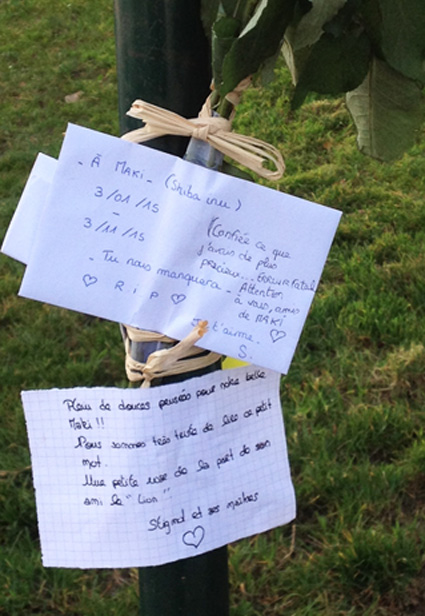 - À MAKI - (Shiba inu)
3/01/15
-
3/11/15
(Confiée ce que
j'avais de plus
précieux... Erreur Fatal
- Tu nous manquera - Attention
à vous, amis
de MAKI
♡ R i P ♡
♡
Je t'aime.
S.
Plein de douces pensées pour notre belle
Maki !!
Nous sommes très triste de lire ce petit
mot.
Une petite rose de la part de son
ami le "Lion"!!
et ses maîtres
♡